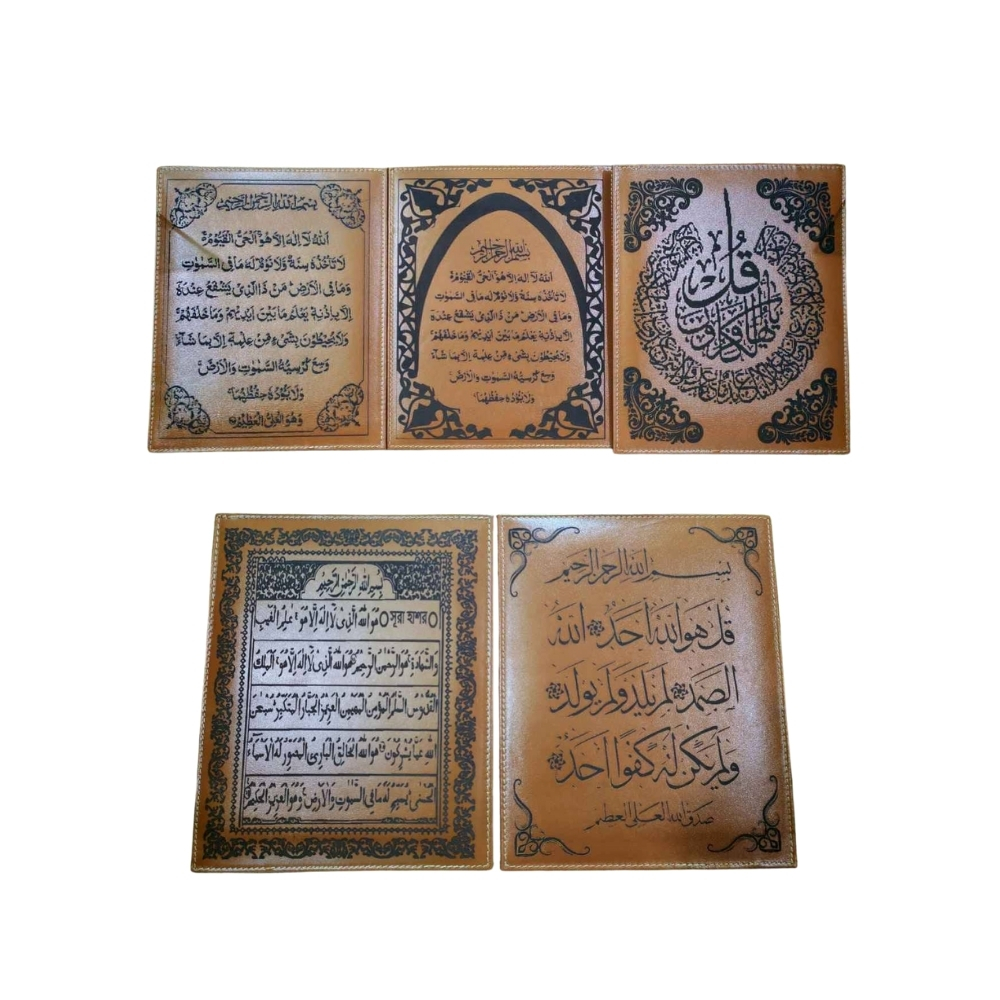 بسم الله الرحمن الرحيم
اَللهُ لَآ اِلٰهَ اِلَّا هُوَ اَلْحَىُّ الْقَيُّوْمُ
لَا تَاْخُذُهٗ سِنَةٌ وَّلَا نَوْمٌ لَهٗ مَا فِى السَّمٰوٰتِ
وَمَا فِى الْاَرْضِ مَنْ ذَا الَّذِىْ يَشْفَعُ عِنْدَهٗ
اِلَّا بِاِذْنِهٖ يَعْلَمُ مَا بَيْنَ اَيْدِيْهِمْ وَمَا خَلْفَهُمْ
وَلَا يُحِيْطُوْنَ بِشَىْءٍ مِّنْ عِلْمِهٖ اِلَّا بِمَا شَآءَ
وَسِعَ كُرْسِيُّهُ السَّمٰوٰتِ وَالْاَرْضَ
وَلَا يَؤُدُهٗ حِفْظُهُمَا
وَهُوَ الْعَلِىُّ الْعَظِيْمُ
بسم الله الرحمن الرحيم
اَللهُ لَآ اِلٰهَ اِلَّا هُوَ اَلْحَىُّ الْقَيُّوْمُ
لَا تَاْخُذُهٗ سِنَةٌ وَّلَا نَوْمٌ لَهٗ مَا فِى السَّمٰوٰتِ
وَمَا فِى الْاَرْضِ مَنْ ذَا الَّذِىْ يَشْفَعُ عِنْدَهٗ
اِلَّا بِاِذْنِهٖ يَعْلَمُ مَا بَيْنَ اَيْدِيْهِمْ وَمَا خَلْفَهُمْ
وَلَا يُحِيْطُوْنَ بِشَىْءٍ مِّنْ عِلْمِهٖ اِلَّا بِمَا شَآءَ
وَسِعَ كُرْسِيُّهُ السَّمٰوٰتِ وَالْاَرْضَ
وَلَا يَؤُدُهٗ حِفْظُهُمَا
قُلْ
يأيها الكافرون
بِسْمِ اللهِ الرَّحْمٰنِ الرَّحِيْمِ
সূরা হাশর هُوَ اللهُ الَّذِىْ لَآ اِلٰهَ اِلَّا هُوَ عٰلِمُ الْغَيْبِ
وَالشَّهَادَةِ هُوَ الرَّحْمٰنُ الرَّحِيْمُ هُوَ اللهُ الَّذِىْ لَآ اِلٰهَ اِلَّا هُوَ اَلْمَلِكُ
الْقُدُّوْسُ السَّلٰمُ الْمُؤْمِنُ الْمُهَيْمِنُ الْعَزِيْزُ الْجَبَّارُ الْمُتَكَبِّرُ سُبْحٰنَ
اللهِ عَمَّا يُشْرِكُوْنَ هُوَ اللهُ الْخَالِقُ الْبَارِئُ الْمُصَوِّرُ لَهُ الْاَسْمَآءُ
الْحُسْنٰى يُسَبِّحُ لَهٗ مَا فِى السَّمٰوٰتِ وَالْاَرْضِ وَهُوَ الْعَزِيْزُ الْحَكِيْمُ
بسم الله الرحمن الرحيم
قُلْ هُوَ اللهُ اَحَدٌ اللهُ
الصَّمَدُ لَمْ يَلِدْ وَلَمْ يُولَدْ
وَلَمْ يَكُنْ لَهُ كُفُوًا اَحَدٌ
صدق الله العلي العظيم